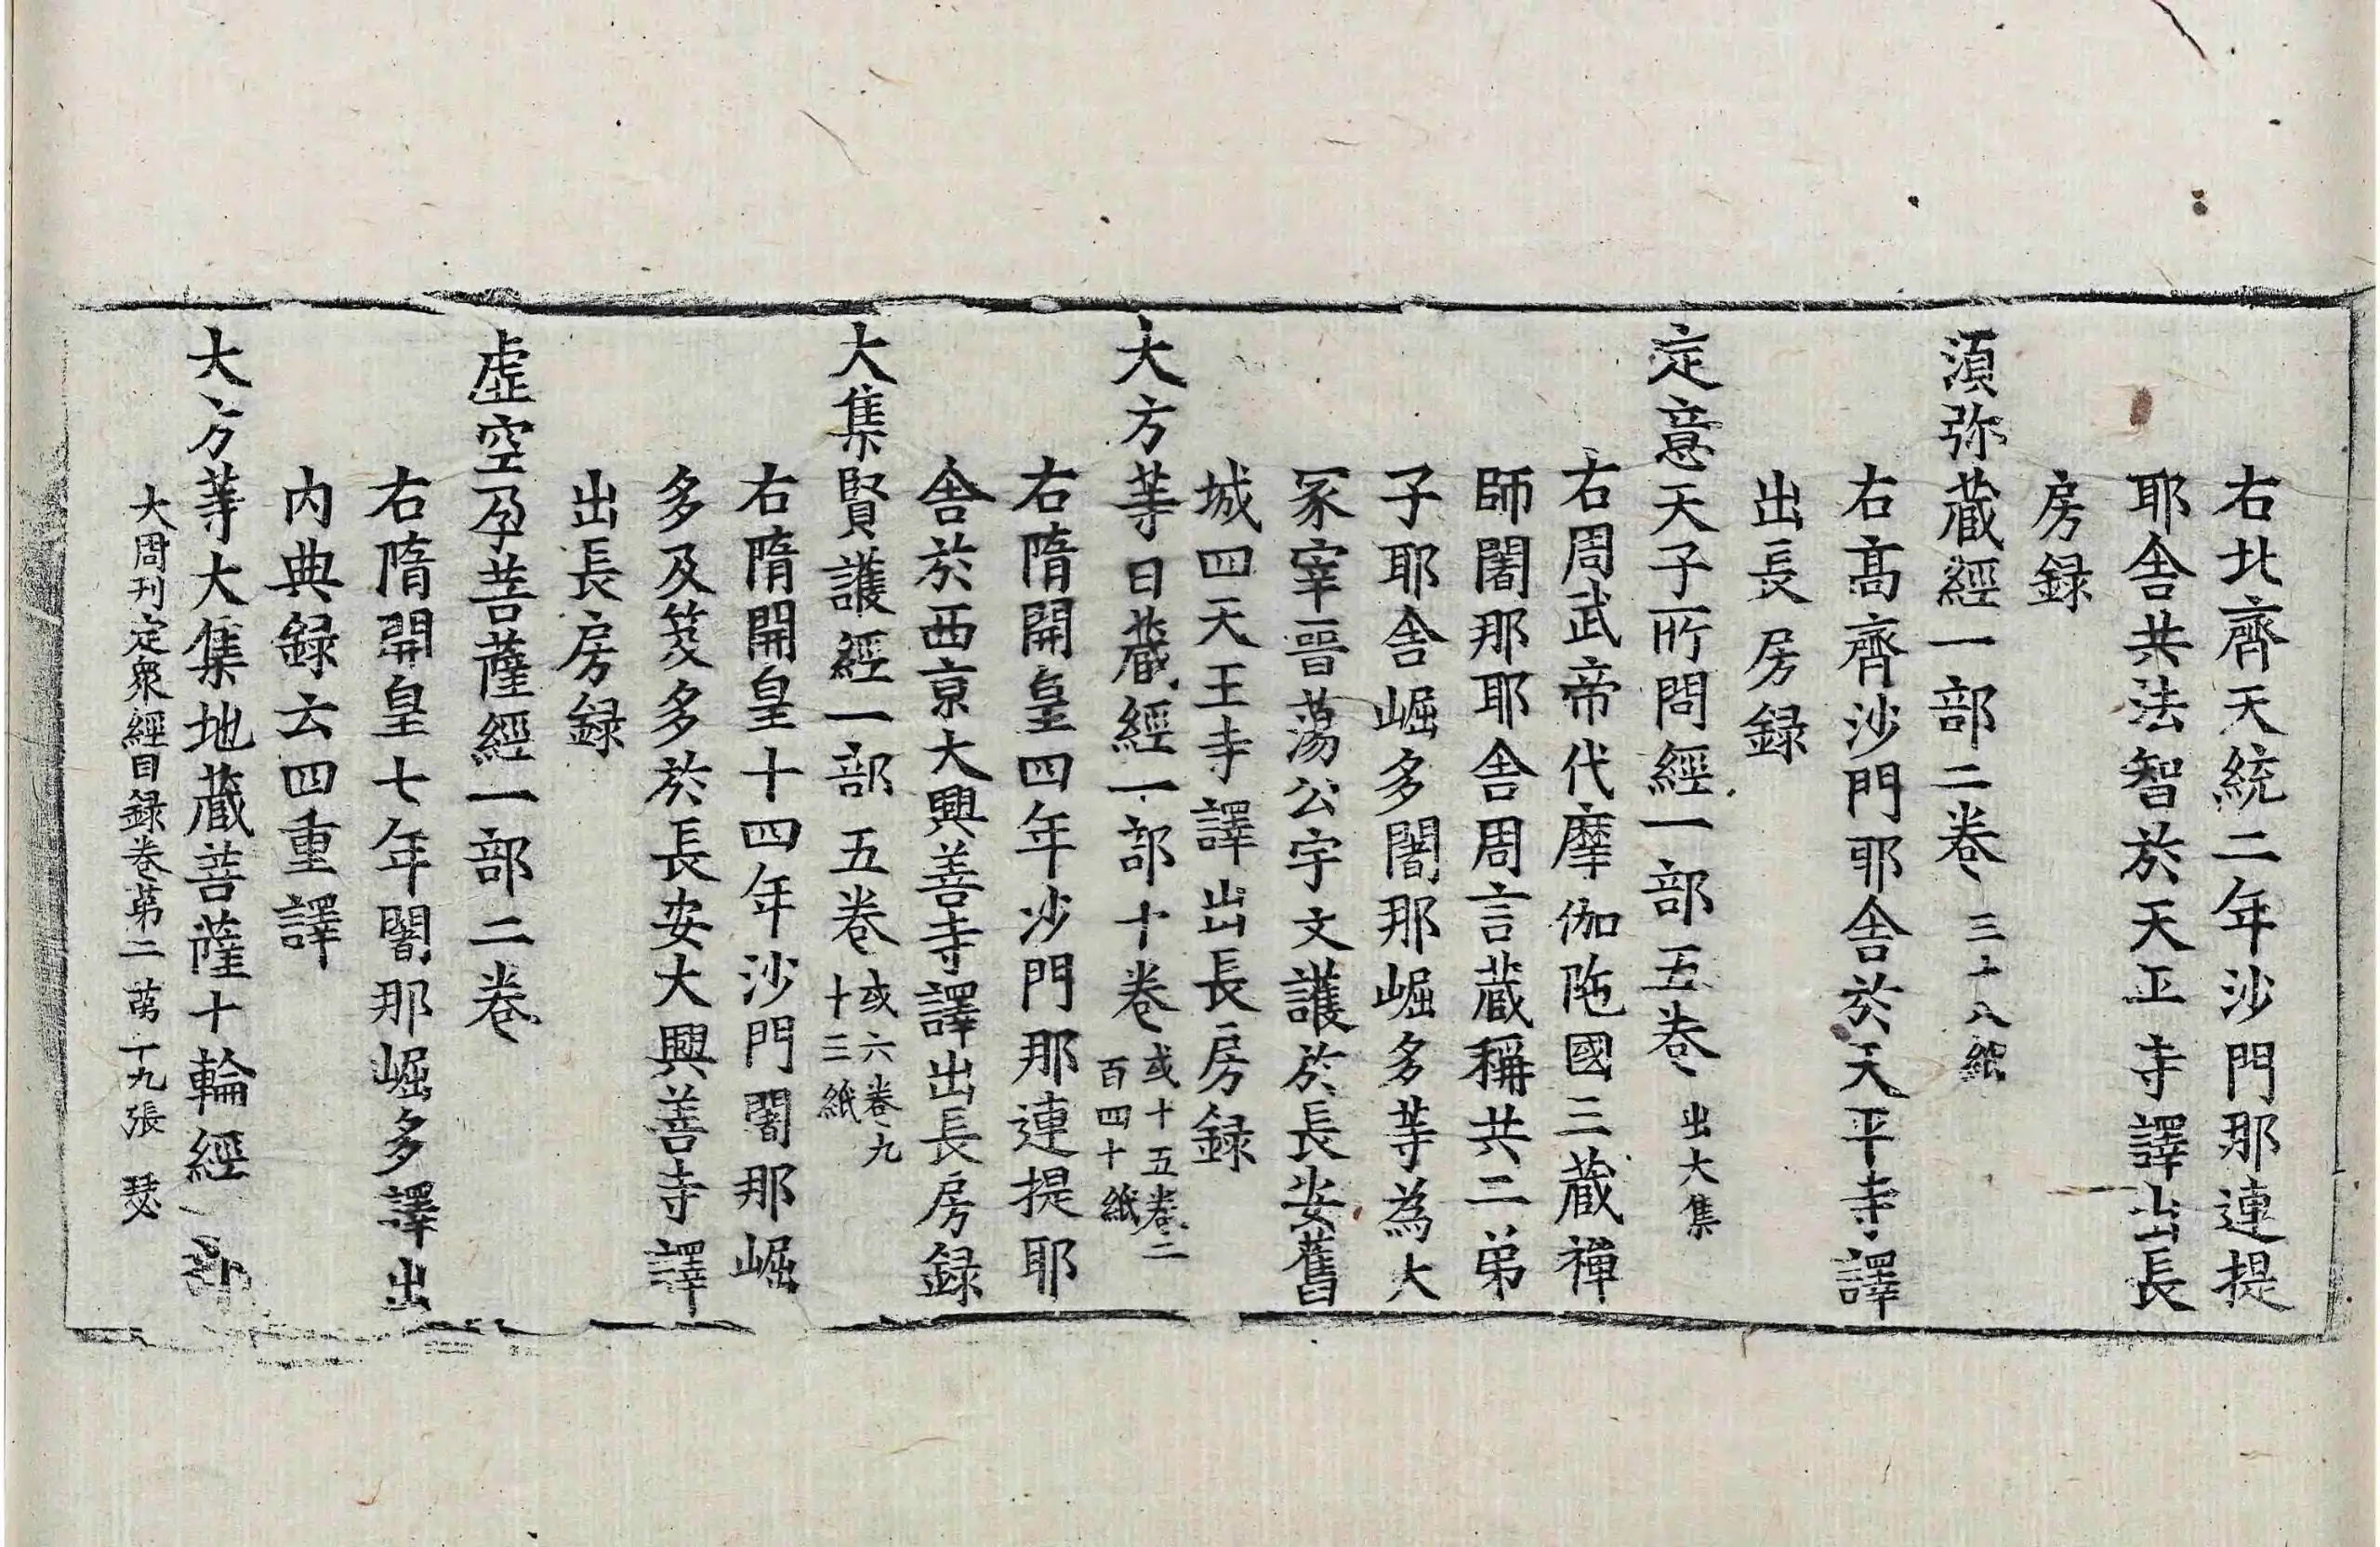 右北齊天統二年沙門那連提
耶舍共法智於天平寺譯出長
房録
湏弥蔵經一部二卷 三十八紙
右髙齊沙門耶舍於天平寺譯
出長房録
定意天子所問經一部五卷 出大集
右周武帝代摩伽陁國三蔵禅
師闍那耶舍周言蔵稱共二弟
子耶舍崛多闍那崛多等為大
冢宰晉蕩公宇文護於長安舊
城四天王寺譯出長房録
大方等日蔵經一部十卷 或十五卷二百四十紙
右隋開皇四年沙門那連提耶
舍於西京大興善寺譯出長房録
大集賢護經一部五卷 或六卷九十三紙
右隋開皇十四年沙門闍那崛
多及笈多於長安大興善寺譯
出長房録
虛空孕菩薩經一部二卷
右隋開皇七年闍那崛多譯出
内典録云四重譯
大方等大集地蔵菩薩十輪經一部
大周刊定衆經目録卷第二 苐十九張 瑟